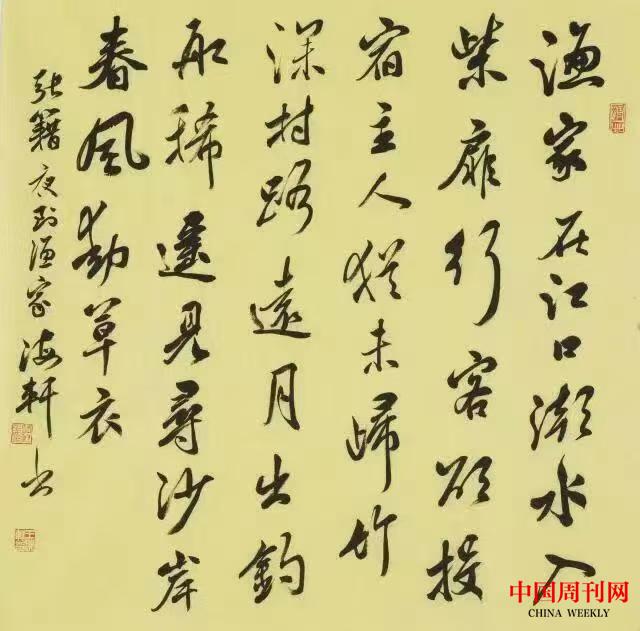 渔家在江口潮水入
柴扉行客欲投
宿主人犹未歸竹
深村路遠月出釣
船稀遥見尋沙岸
春風動草衣
张籍夜到渔家海軒书
中国周刊网
CHINA WEEKLY